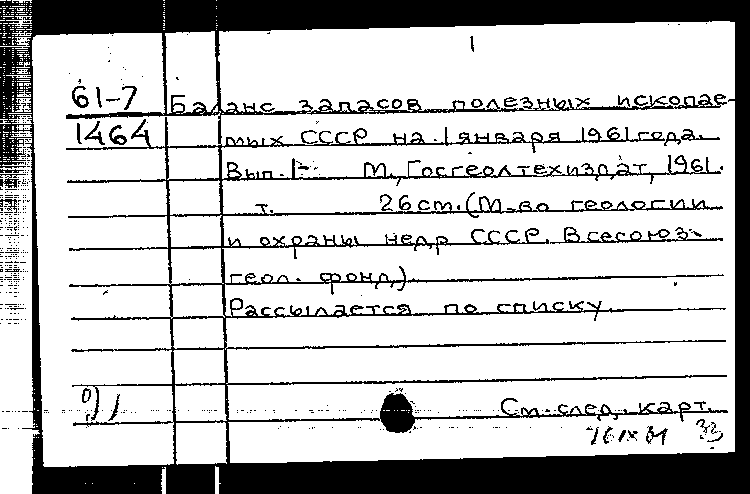 1
61-7 Баланс запасов полезных ископае-
1464 мых СССР на 1 января 1961 года.
Вып. 1- М., Госгеолтехиздат, 1961.
т. 26 cm. (М-во геологии
и охраны недр СССР. Всесоюз-
геол. фонд.)
Рассылается по списку.
См. след. карт.
33